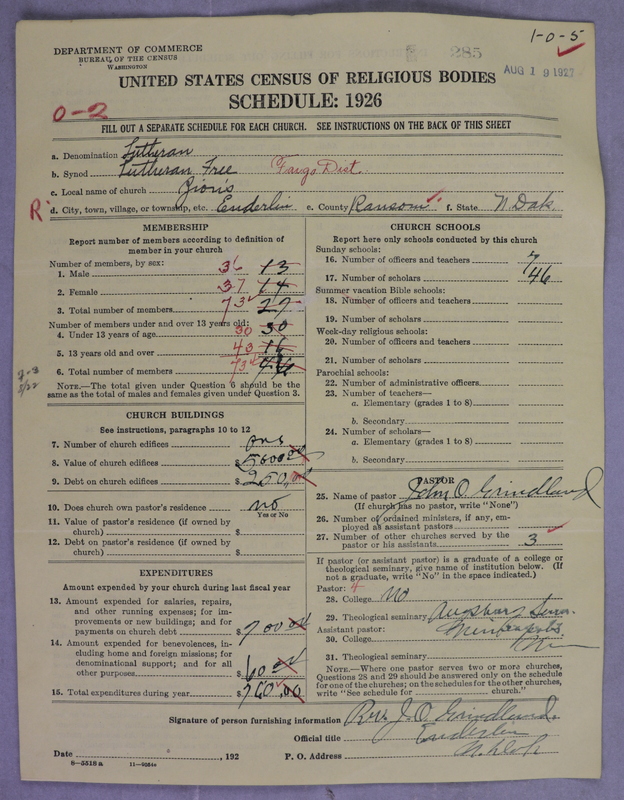 1-0-5
285
AUG 19 1927
DEPARTMENT OF COMMERCE
BUREAU OF THE CENSUS
WASHINGTON
UNITED STATES CENSUS OF RELIGIOUS BODIES
SCHEDULE: 1926
0-2
FILL OUT A SEPARATE SCHEDULE FOR EACH CHURCH. SEE INSTRUCTIONS ON THE BACK OF THIS SHEET
a. Denomination Lutheran
b. Synod Lutheran Free Fargo Dist.
c. Local name of church Zion's
R d. City, town, village, or township, etc. Enderlin e. County Ransom f. State N. Dak.
MEMBERSHIP
Report number of members according to definition of
member in your church
Number of members, by sex:
1. Male 36 13
2. Female 37 14
3. Total number of members 73 27
Number of members under and over 13 years old:
4. Under 13 years of age 30 30
5. 13 years old and over 43 16
6. Total number of members 73 46
NOTE.—The total given under Question 6 should be the
same as the total of males and females given under Question 3.
CHURCH BUILDINGS
See instructions, paragraphs 10 to 12
7. Number of church edifices one
8. Value of church edifices $5600.00
9. Debt on church edifices $250.00
10. Does church own pastor's residence no
Yes or No
11. Value of pastor's residence (if owned by
church) $
12. Debt on pastor's residence (if owned by
church) $
EXPENDITURES
Amount expended by your church during last fiscal year
13. Amount expended for salaries, repairs,
and other running expenses; for im-
provements or new buildings; and for
payments on church debt $700.00
14. Amount expended for benevolences, in-
cluding home and foreign missions; for
denominational support; and for all
other purposes $60.00
15. Total expenditures during year $760.00
CHURCH SCHOOLS
Report here only schools conducted by this church
Sunday schools:
16. Number of officers and teachers 7
17. Number of scholars 46
Summer vacation Bible schools:
18. Number of officers and teachers
19. Number of scholars
Week-day religious schools:
20. Number of officers and teachers
21. Number of scholars
Parochial schools:
22. Number of administrative officers
23. Number of teachers—
a. Elementary (grades 1 to 8)
b. Secondary
24. Number of scholars—
a. Elementary (grades 1 to 8)
b. Secondary
PASTOR
25. Name of pastor John O. Grindland
(If church has no pastor, write "None")
26. Number of ordained ministers, if any, em-
ployed as assistant pastors
27. Number of other churches served by the
pastor or his assistants 3
If pastor (or assistant pastor) is a graduate of a college or
theological seminary, give name of institution below. (If
not a graduate, write "No" in the space indicated.)
Pastor: 4
28. College no
29. Theological seminary Augsburg Sem.
Assistant pastor: Minneapolis
30. College
31. Theological seminary
NOTE.—Where one pastor serves two or more churches,
Questions 28 and 29 should be answered only on the schedule
for one of the churches; on the schedules for the other churches,
write "See schedule for church."
Signature of person furnishing information Rev. J. O. Grindland
Official title Enderlin
Date , 192 P. O. Address N. Dak
8-5518 a